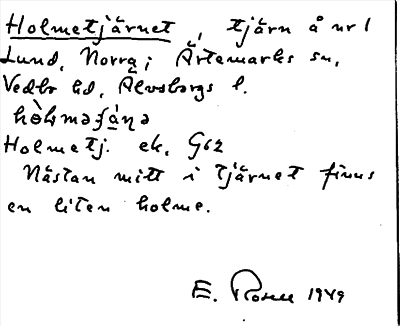 Holmetjärnet, tjärn å nr 1
Lund, Norra; Ärtemarks sn,
Vedbo hd, Älvsborgs l.
Holmetj. ek. G62
Nästan mitt i tjärnet finns
en liten holme.
E. Rosell 1949